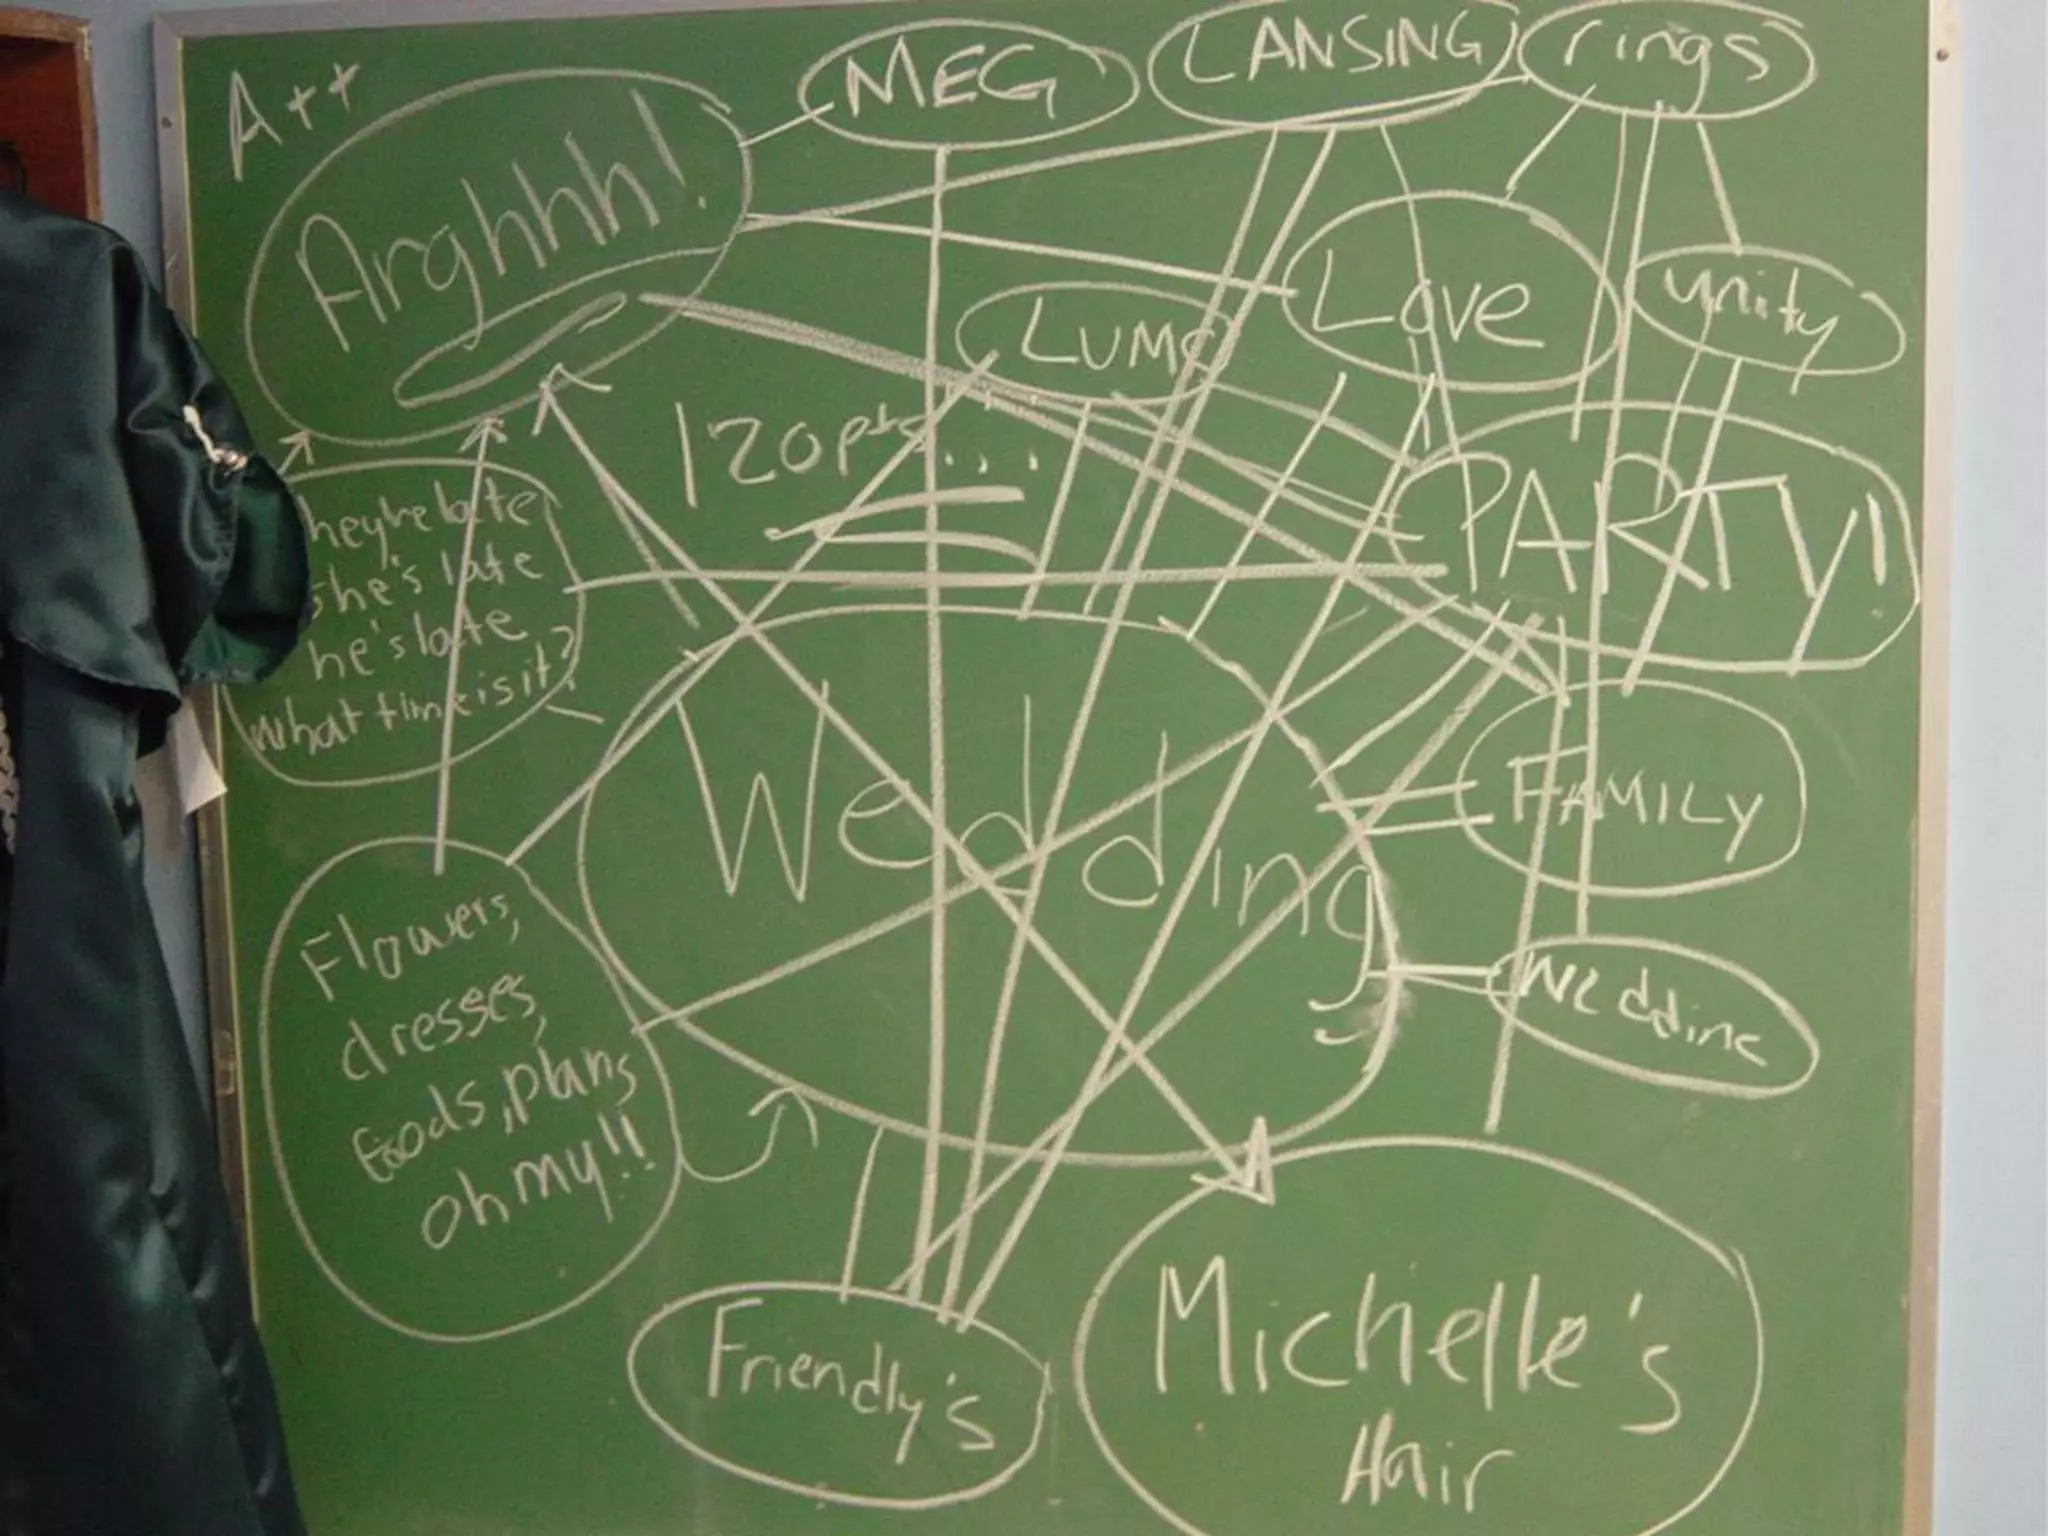 A++
MEG
LANSING
rings
Arghhh!
Love
unity
LUMC
120pts...
PARTY!
heyre late
she's late
he's late
what time is it?
Wedding
FAMILY
Flowers,
dresses,
foods, plans
oh my!!
Wedding
Friendly's
Michelle's
Hair